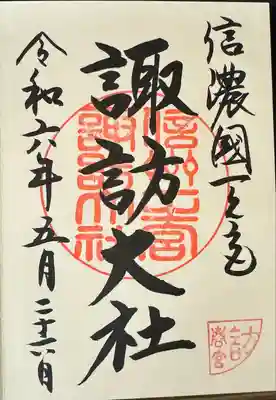 信濃國一之宮
諏訪大社
令和六年五月二十六日
春宮